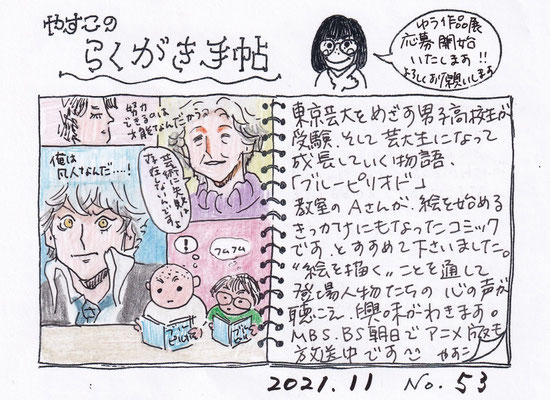 やすこの
らくがき手帖
ゆう作品展
応募開始
いたします!!
よろしくお願いします
努力
できるのは
才能なんだからっ
俺は
凡人なんだ…!
芸術に失敗は
存在しないんです
!
フムフム
ブルー
ピリオド
東京芸大をめざす男子高校生が
受験、そして芸大生になって
成長していく物語、
「ブルーピリオド」
教室のAさんが、絵を始める
きっかけにもなったコミック
です、とすすめて下さいました。
“絵を描く”ことを通して
登場人物たちの心の声が
聴こえ、興味がわきます。
MBS.BS朝日でアニメ版も
放送中です やすこ
2021.11 No.53